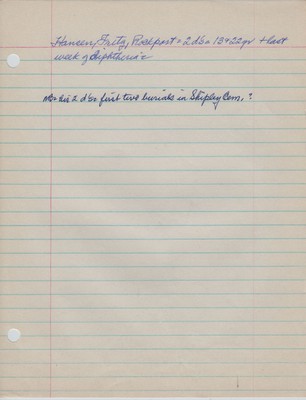 Hansen, Fritz, Rockport - 2 d's - 13 & 22 yr + last
week of Diphtheria
his 2 d's first two burials in Shipley Cem. ?